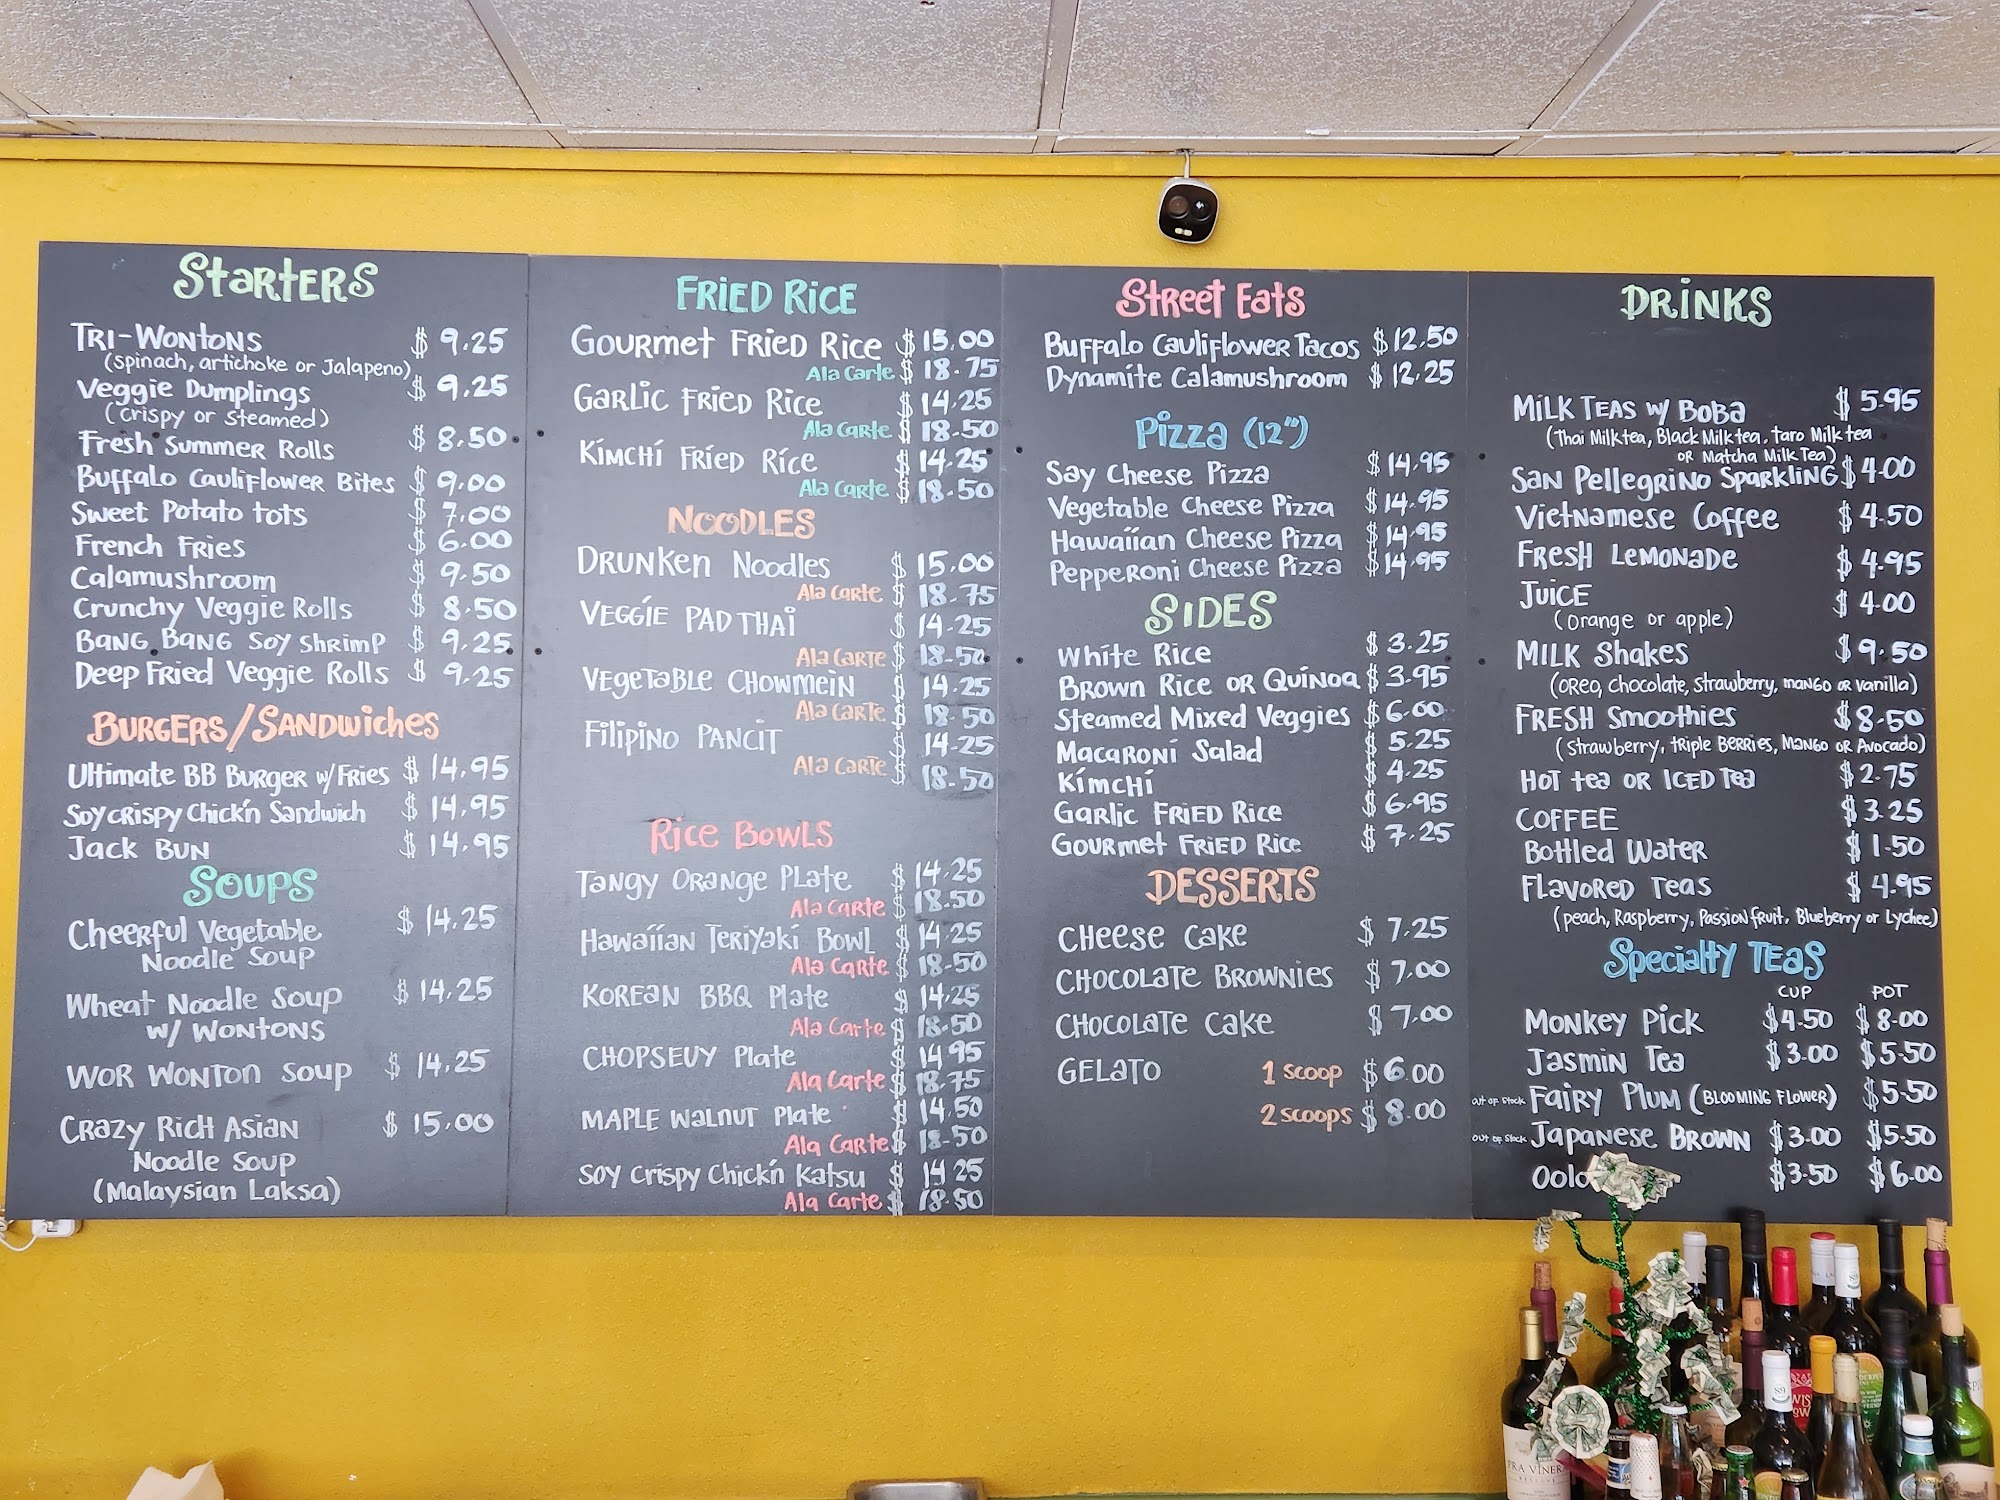 Starters
Tri-Wontons $ 9.25
(spinach, artichoke or Jalapeno)
Veggie Dumplings $ 9.25
(crispy or steamed)
Fresh Summer Rolls $ 8.50
Buffalo Cauliflower Bites $ 9.00
Sweet Potato tots $ 7.00
French Fries $ 6.00
Calamushroom $ 9.50
Crunchy Veggie Rolls $ 8.50
Bang Bang Soy Shrimp $ 9.25
Deep Fried Veggie Rolls $ 9.25
Burgers/Sandwiches
Ultimate BB Burger w/Fries $ 14.95
Soy crispy Chick'n Sandwich $ 14.95
Jack Bun $ 14.95
Soups
Cheerful Vegetable $ 14.25
Noodle Soup
Wheat Noodle Soup $ 14.25
w/ Wontons
Wor Wonton Soup $ 14.25
Crazy Rich Asian $ 15.00
Noodle Soup
(Malaysian Laksa)
Fried Rice
Gourmet Fried Rice $ 15.00
Ala Carte $ 18.75
Garlic Fried Rice $ 14.25
Ala Carte $ 18.50
Kimchi Fried Rice $ 14.25
Ala Carte $ 18.50
Noodles
Drunken Noodles $ 15.00
Ala Carte $ 18.75
Veggie Pad Thai $ 14.25
Ala Carte $ 18.50
Vegetable Chowmein $ 14.25
Ala Carte $ 18.50
Filipino Pancit $ 14.25
Ala Carte $ 18.50
Rice Bowls
Tangy Orange Plate $ 14.25
Ala Carte $ 18.50
Hawaiian Teriyaki Bowl $ 14.25
Ala Carte $ 18.50
Korean BBQ Plate $ 14.25
Ala Carte $ 18.50
Chopseuy Plate $ 14 95
Ala Carte $ 18.75
Maple Walnut Plate $ 14.50
Ala Carte $ 18.50
Soy Crispy Chick'n Katsu $ 14 25
Ala Carte $ 18.50
Street Eats
Buffalo Cauliflower Tacos $ 12.50
Dynamite Calamushroom $ 12.25
Pizza (12")
Say Cheese Pizza $ 14.95
Vegetable Cheese Pizza $ 14.95
Hawaiian Cheese Pizza $ 14.95
Pepperoni Cheese Pizza $ 14.95
Sides
White Rice $ 3.25
Brown Rice or Quinoa $ 3.95
Steamed Mixed Veggies $ 6.00
Macaroni Salad $ 5.25
Kimchi $ 4.25
Garlic Fried Rice $ 6.95
Gourmet Fried Rice $ 7.25
Desserts
Cheese Cake $ 7.25
Chocolate Brownies $ 7.00
Chocolate Cake $ 7.00
Gelato 1 scoop $ 6.00
2 scoops $ 8.00
Drinks
Milk Teas w/ Boba $ 5.95
(Thai Milktea, Black Milktea, Taro Milk tea
or Matcha Milk Tea)
San Pellegrino Sparkling $ 4.00
Vietnamese Coffee $ 4.50
Fresh Lemonade $ 4.95
Juice $ 4.00
(orange or apple)
Milk Shakes $ 9.50
(oreo, chocolate, strawberry, mango or vanilla)
Fresh Smoothies $ 8.50
(strawberry, triple Berries, Mango or Avocado)
Hot tea or Iced tea $ 2.75
Coffee $ 3.25
Bottled Water $ 1.50
Flavored Teas $ 4.95
(peach, Raspberry, Passion fruit, Blueberry or Lychee)
Specialty Teas
CUP POT
Monkey Pick $4.50 $ 8.00
Jasmin Tea $3.00 $5.50
out of stock Fairy Plum (Blooming Flower) $5.50
out of stock Japanese Brown $3.00 $5.50
Oolo $3.50 $6.00